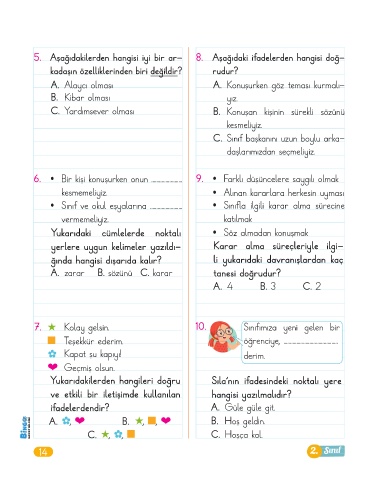 5. Aşağıdakilerden hangisi iyi bir ar-
kadaşın özelliklerinden biri değildir?
A. Alaycı olması
B. Kibar olması
C. Yardımsever olması
6. • Bir kişi konuşurken onun ............
kesmemeliyiz.
• Sınıf ve okul eşyalarına ............
vermemeliyiz.
Yukarıdaki cümlelerde noktalı
yerlere uygun kelimeler yazıldı-
ğında hangisi dışarıda kalır?
A. zarar B. sözünü C. karar
7. ★ Kolay gelsin.
■ Teşekkür ederim.
✿ Kapat şu kapıyı!
❤ Geçmiş olsun.
Yukarıdakilerden hangileri doğru
ve etkili bir iletişimde kullanılan
ifadelerdendir?
A. ✿, ❤ B. ★, ■, ❤
C. ★, ✿, ■
8. Aşağıdaki ifadelerden hangisi doğ-
rudur?
A. Konuşurken göz teması kurmalı-
yız.
B. Konuşan kişinin sürekli sözünü
kesmeliyiz.
C. Sınıf başkanını uzun boylu arka-
daşlarımızdan seçmeliyiz.
9. • Farklı düşüncelere saygılı olmak
• Alınan kararlara herkesin uyması
• Sınıfla ilgili karar alma sürecine
katılmak
• Söz almadan konuşmak
Karar alma süreçleriyle ilgi-
li yukarıdaki davranışlardan kaç
tanesi doğrudur?
A. 4 B. 3 C. 2
10. Sınıfımıza yeni gelen bir
öğrenciye, ............
derim.
Sıla'nın ifadesindeki noktalı yere
hangisi yazılmalıdır?
A. Güle güle git.
B. Hoş geldin.
C. Hoşça kal.
14
2. Sınıf